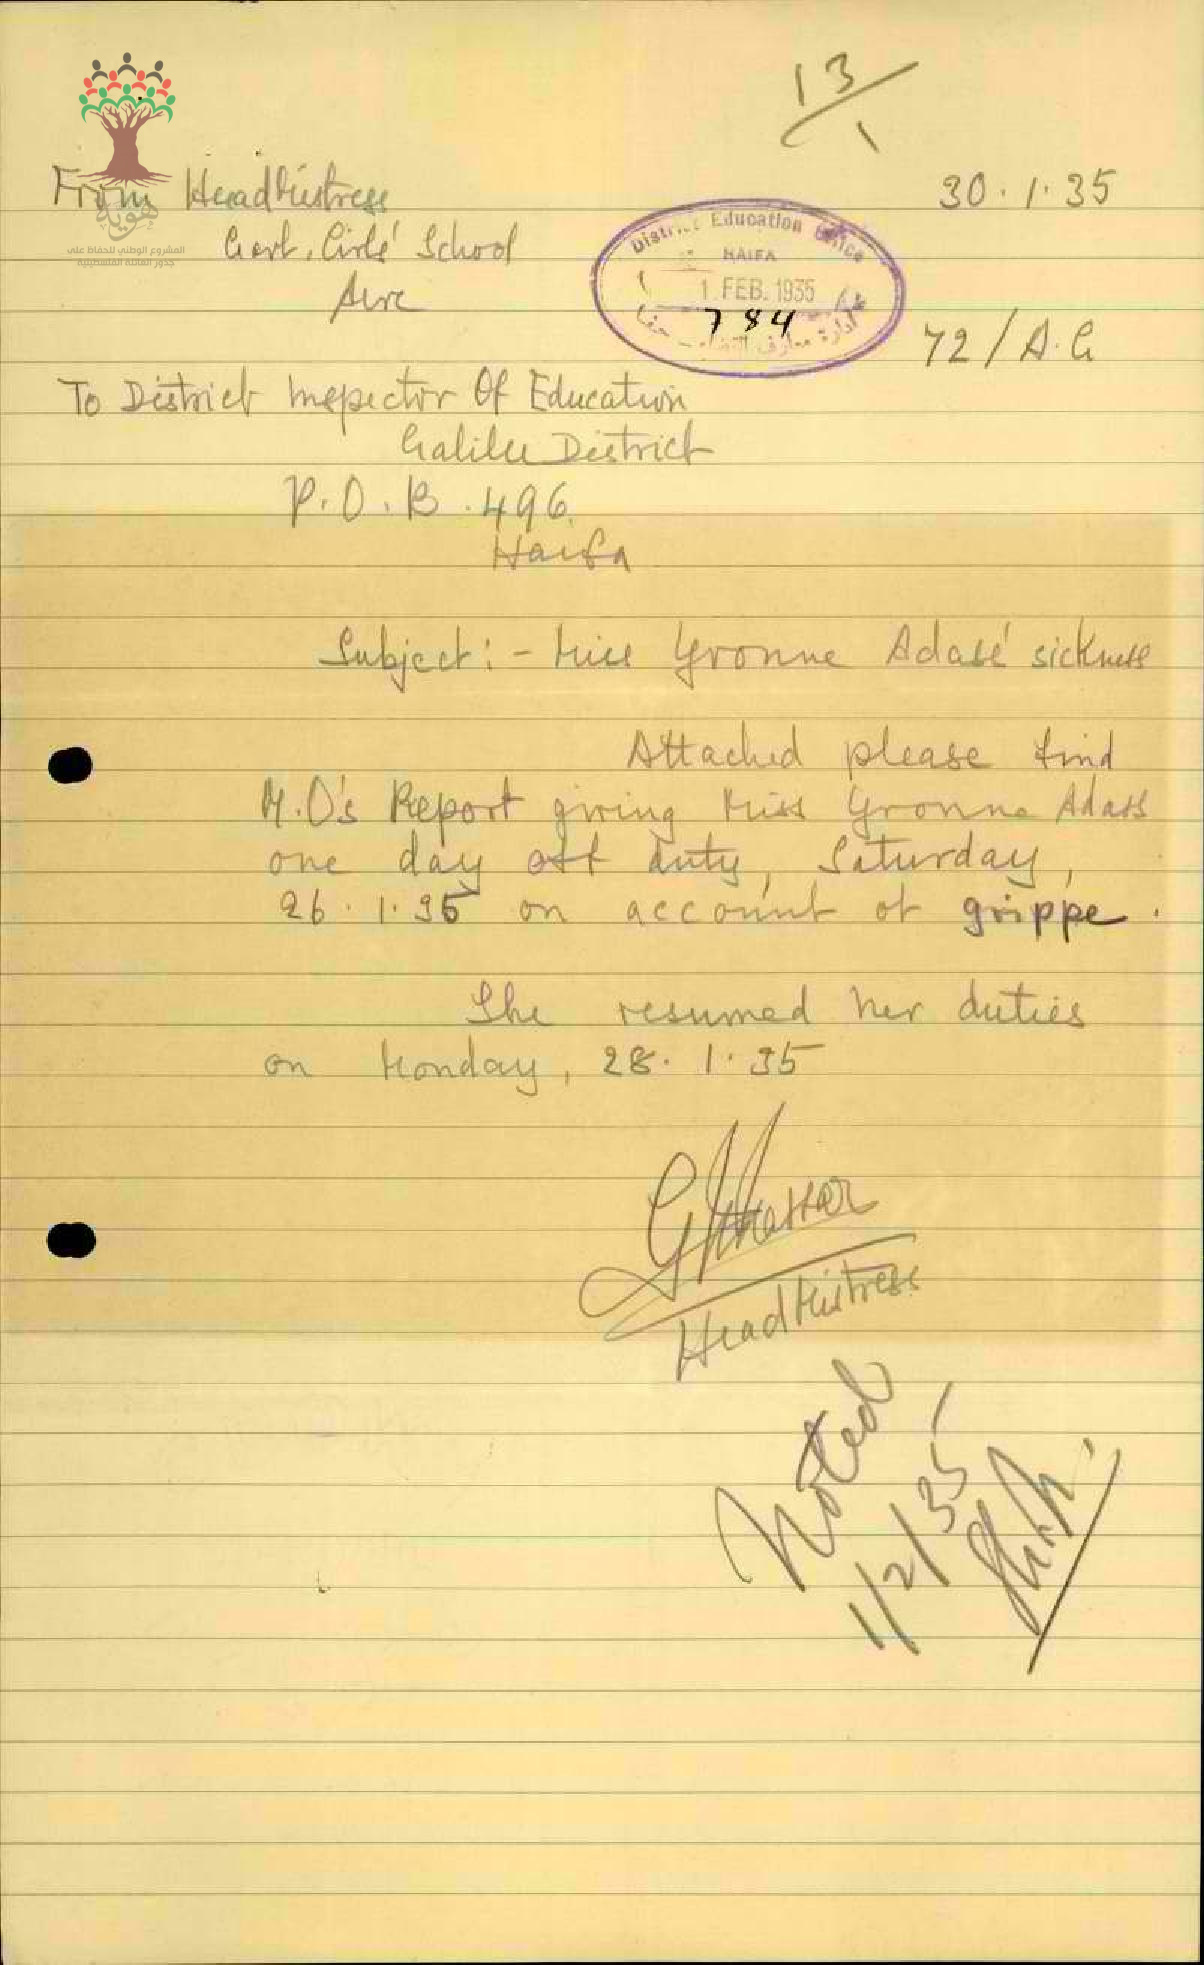 13/1
From HeadMistress
30.1.35
Govt. Girls' School
Acre
District Education Office
HAIFA
1 FEB. 1935
784
ادارة معارف القضاء حيفا
72/A.G
To District Inspector Of Education
Galilee District
P.O.B. 496
Haifa
Subject:- Miss Yvonne Adass' sickness
Attached please find
M.O's Report giving Miss Yvonne Adass
one day off duty, Saturday,
26.1.35 on account of grippe.
She resumed her duties
on Monday, 28.1.35
HeadMistress
Noted
1/2/35
هوية
المشروع الوطني للحفاظ على
جذور العائلة الفلسطينية